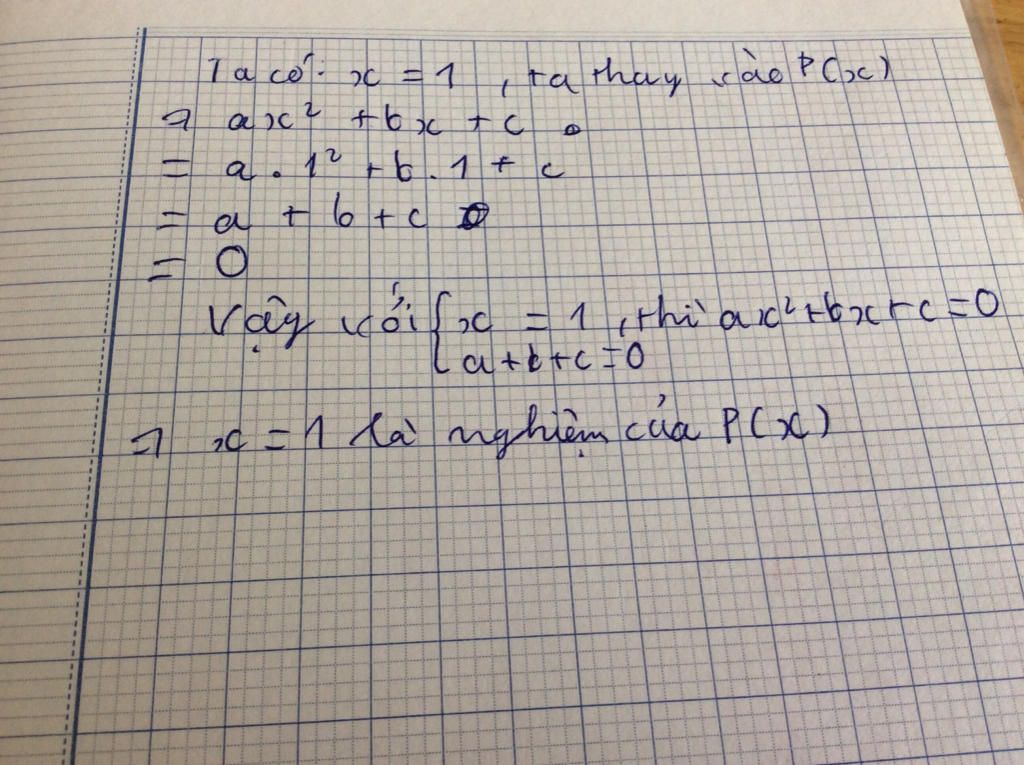 Ta có: x = 1 , ta thay vào P(x)
⇒ ax² + bx + c
= a . 1² + b . 1 + c
= a + b + c
= 0
Vậy với { x = 1 , thì ax² + bx + c = 0
a + b + c = 0
⇒ x = 1 là nghiệm của P(x)